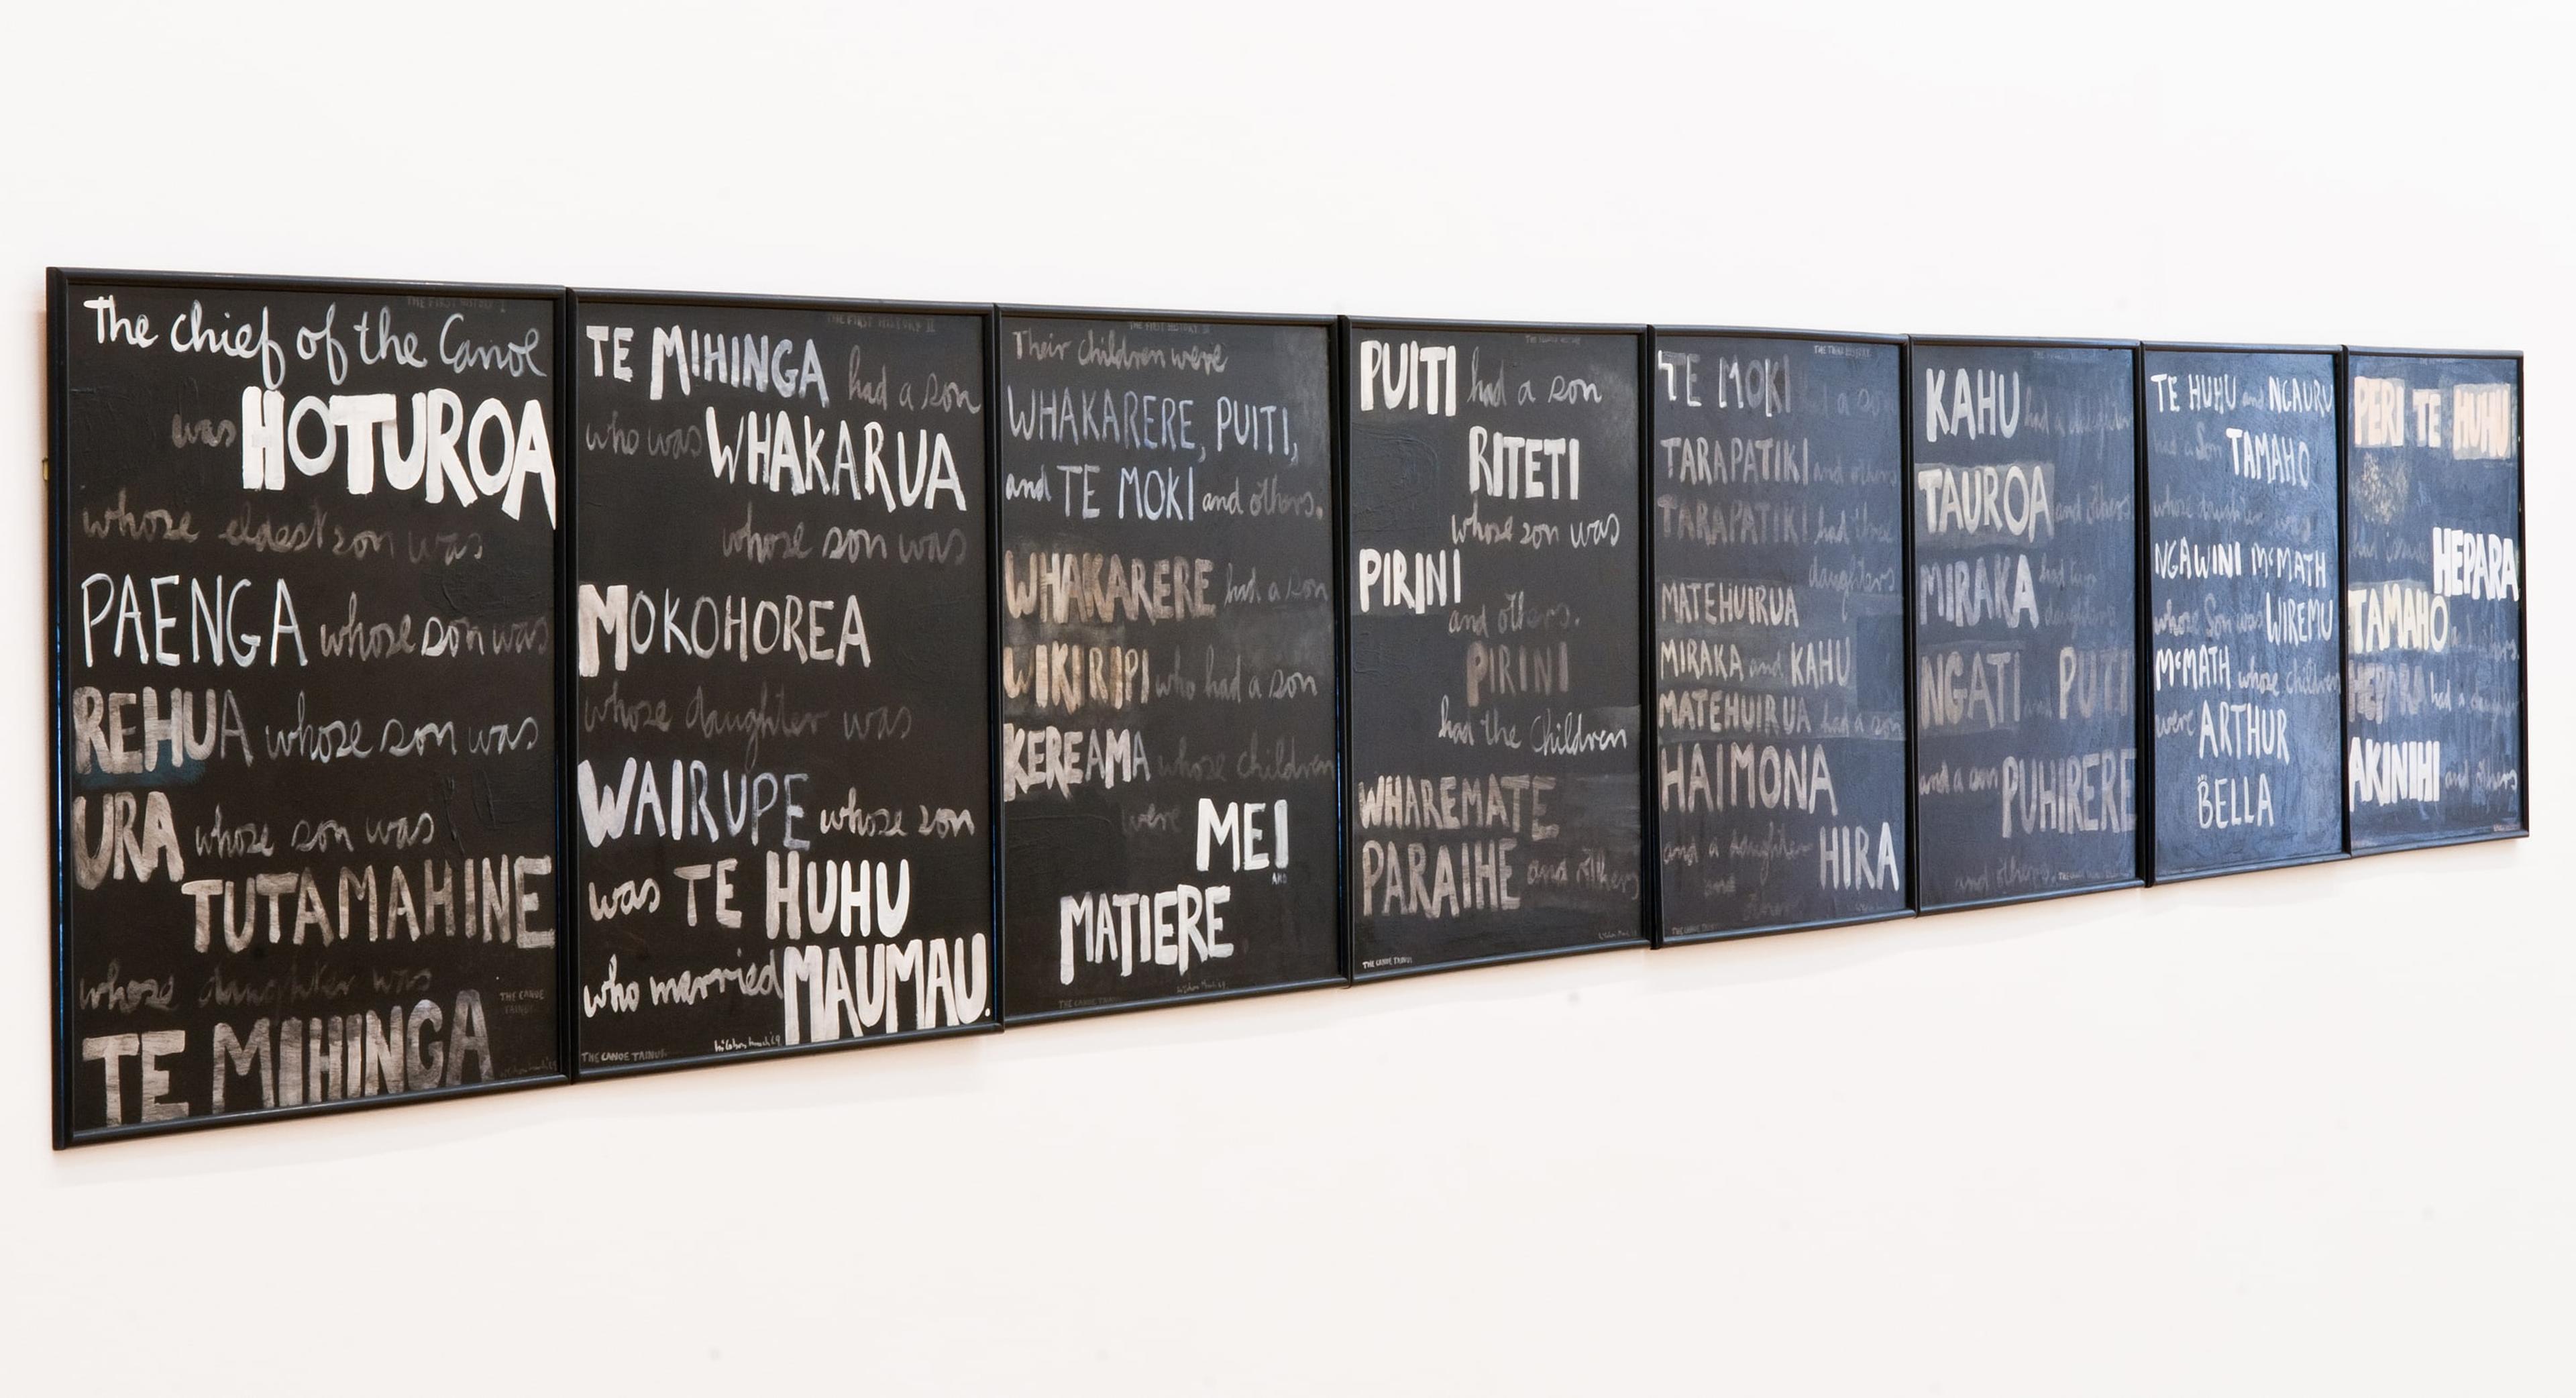 The chief of the Canoe
was HOTUROA
whose eldest son was
PAENGA whose son was
REHUA whose son was
URA whose son was
TUTAMAHINE
whose daughter was
THE CANOE
TAINUI.
TE MIHINGA
THE FIRST HISTORY II
TE MIHINGA had a son
who was WHAKARUA
whose son was
MOKOHOREA
whose daughter was
WAIRUPE whose son
was TE HUHU
who married MAUMAU.
THE CANOE TAINUI.
THE FIRST HISTORY III
Their children were
WHAKARERE, PUITI,
and TE MOKI and others.
WHAKARERE had a son
WIKIRIPI who had a son
KEREAMA whose children
were MEI
AND
MATIERE
THE CANOE TAINUI
PUITI had a son
RITETI
whose son was
PIRINI
and others.
PIRINI
had the Children
WHAREMATE
PARAIHE and others
THE CANOE TAINUI
TE MOKI had a son
TARAPATIKI and others
TARAPATIKI had three
daughters
MATEHUIRUA
MIRAKA and KAHU
MATEHUIRUA had a son
HAIMONA
and a daughter HIRA
and
THE CANOE TAINUI
KAHU had a daughter
TAUROA and others
MIRAKA had two
daughters
NGATI and PUTI
and a son PUHIRERE
and others.
TE HUHU and NGAURU
had a Son TAMAHO
whose daughter was
NGAWINI McMATH
whose Son was WIREMU
McMATH whose children
were ARTHUR
BELLA
PERI TE HUHU
had issue HEPARA
TAMAHO and others.
HEPARA had a daughter
AKINIHI and others